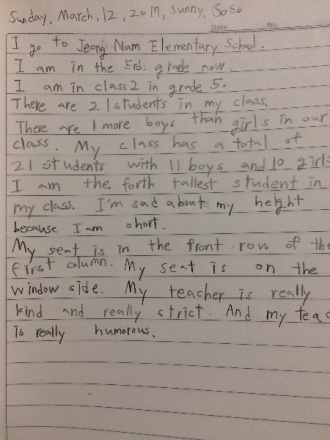 Sunday, March, 12, 2017, Sunny, SoSo
Date No
I go to Jeong Nam Elementary School.
I am in the 5rd: grade now.
I am in class 2 in grade 5.
There are 21 students in my class.
There are 1 more boys than girls in our
class. My class has a total of
21 students with 11 boys and 10 girls
I am the forth tallest student in
my class. I'm sad about my height
because I am short.
My seat is in the front row of the
first column. My seat is on the
window side. My teacher is really
kind and really strict. And my teac
is really humorous.